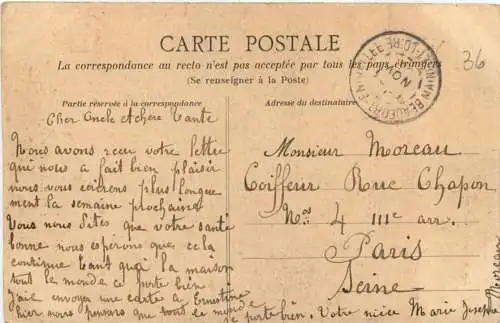 CARTE POSTALE
La correspondance au recto n'est pas acceptée par tous les pays étrangers
(Se renseigner à la Poste)
36
BEAUFORT-EN-VALLÉE
MAINE-ET-LOIRE
NOV
Partie réservée à la correspondance
Cher Oncle et chère Tante
Nous avons recu votre lettre
qui nous a fait bien plaisir
nous vous écrirons plus longue
ment la semaine prochaine
Vous nous dites que votre santé
bonne nous espérons que cela
continue tant qu'à la maison
tout le monde ce porte bien
j'ai envoyer une carte a Ernestine
hier nous pensons que tout ce monde
ce porte bien. Votre nièce Marie Joseph
Moreau
Adresse du destinataire
Monsieur Moreau
Coiffeur Rue Chapon
Nos 4 IIIe arr.
Paris
Seine